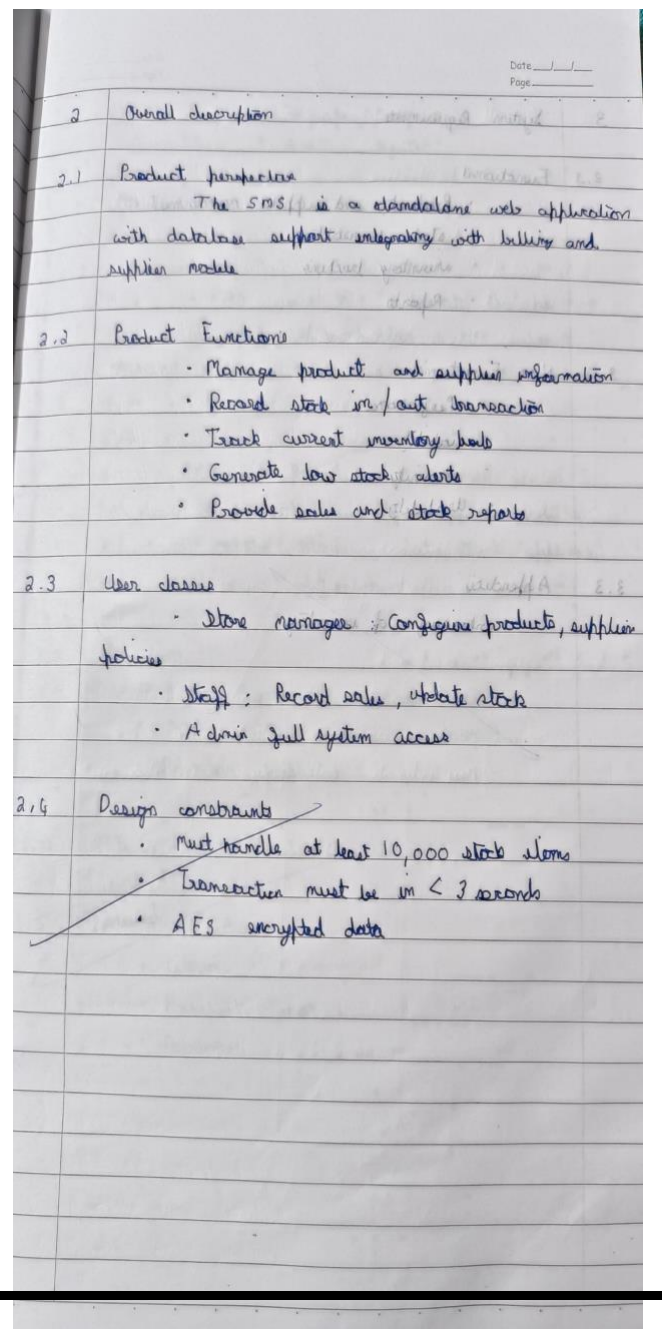 Date __/__/__
Page
2 Overall description
2.1 Product perspective
The SMS is a standalone web application
with database support integrating with billing and
supplier module
2.2 Product Functions
· Manage product and supplier information
· Record stock in / out transaction
· Track current inventory levels
· Generate low stock alerts
· Provide sales and stock reports
2.3 User classes
· Store manager : Configure products, supplier
policies
· Staff : Record sales, update stock
· Admin full system access
2.4 Design constraints
· Must handle at least 10,000 stock items
· Transaction must be in < 3 seconds
· AES encrypted data